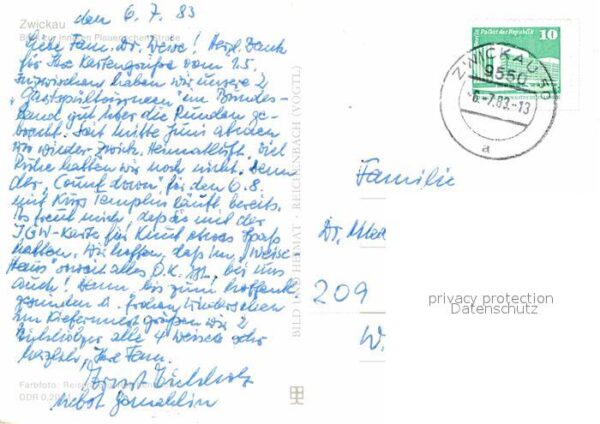 Zwickau
Blick zur Inneren Plauenschen Straße
den 6.7.83
Liebe Fam. Dr. Weise! Herzl. Dank
für Ihre Kartengrüße vom 1.5.
Inzwischen haben wir unsere 2
"Gastspieltourneen" im Bundes-
land gut über die Runden ge-
bracht. Seit Mitte Juni atmen
wir wieder Zwick. Heimatluft. Viel
Ruhe hatten wir noch nicht. Denn
der "Count down" für den 6.8.
mit Kurs Templin läuft bereits.
Es freut mich, daß Sie mit der
IGW-Karte für Knut etwas Spaß
hatten. Wir hoffen, daß im "Weise
Haus" soweit alles O.K. ist. bei uns
auch! Dann bis zum hoffentl.
gesunden u. frohen Wiedersehen
im Kiefernnest grüßen wir 2
Eichhölzer alle 4 Weisels sehr
herzlich, Ihre Fam.
Ernst Eichholz
nebst Gemahlin
Farbfoto:
DDR 0,20
BILD UND HEIMAT · REICHENBACH (VOGTL)
Palast der Republik
10
ZWICKAU
9550
-6.-7.83.-13
a
Familie
Dr.
209
W.
privacy protection
Datenschutz